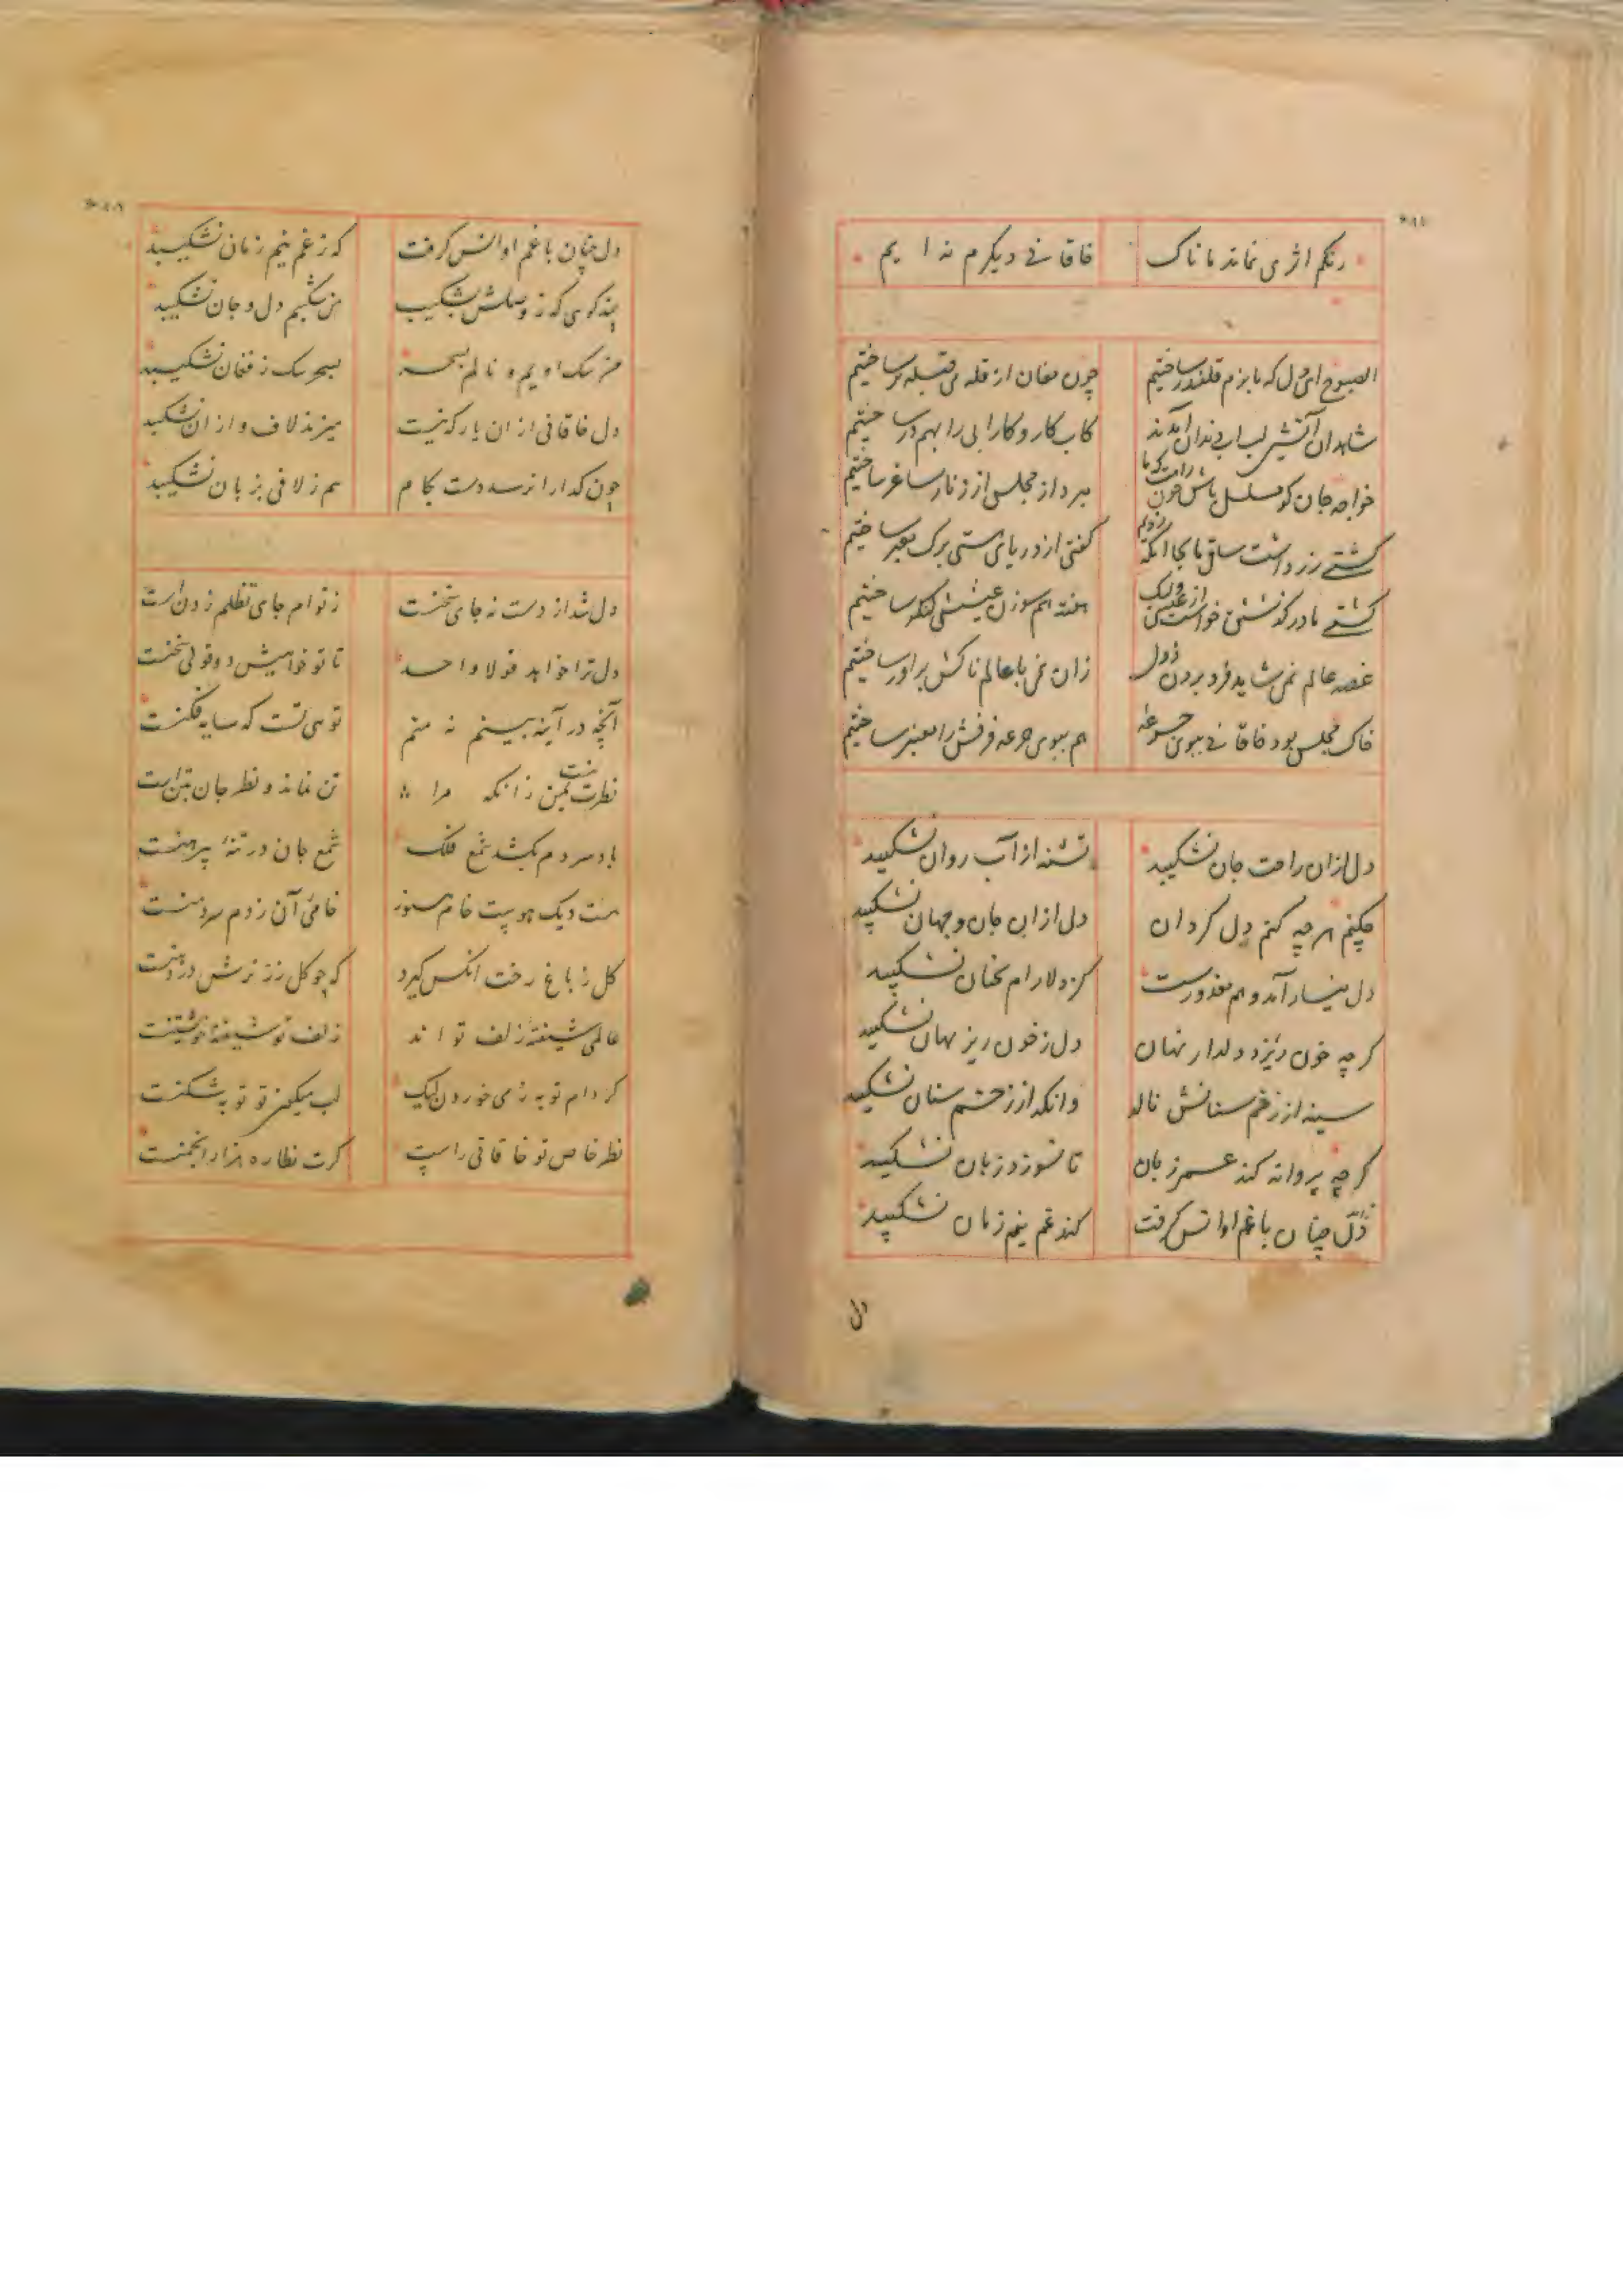 رنکم اثری نماند ماناک خاقانی دیکرم نه ایم
الصبوح ای دل که ما بزم قلندر ساختیم چون مغان از قله می قبله بر ساختیم
شاهدان آتشین لب آب دندان آمدند کاب کار و کار آبی را بهم در ساختیم
خواجه جان کو مسلسل باش چون رامت که ما میر داد مجلس از زنار ساغر ساختیم
کشتی زر داشت ساقی ما بجا انکه زدیم کفتی از دریای هستی برک معبر ساختیم
کشتی ما در کذشتن خواست از عیسی ولیک هفته هم سوزن عیسیش لنکر ساختیم
غصه عالم نمی شاید فرو بردن زدل زان نمی با عالم ناکش برآور ساختیم
خاک مجلس بود خاقانی ببوی جرعه هم ببوی جرعه فرقش را معنبر ساختیم
دل ازان راحت جان نشکیبد تشنه از آب روان نشکیبد
چکنم هر چه کنم دل کردان دل ازان جان و جهان نشکیبد
دل بیمار آمد و هم معذورست کز دلارام نخان نشکیبد
کرچه خون ریزد دلدار نهان دل زخون ریز نهان نشکیبد
سینه از زخم سنانش نالد وانکه از زخم سنان نشکیبد
کرچه پروانه کند عمر زیان تا نسوزد زبان نشکیبد
دل چنان با غم او انس کرفت کند غم نیم زمان نشکیبد
دل
دل چنان با غم او انس کرفت که زغم نیم زمان نشکیبد
پند کوی که ز وصلش بشکیب من شکیبم دل و جان نشکیبد
من سک اویم و نالم بسحر بسحر سک ز فغان نشکیبد
دل خاقانی از ان یار کنیت میزند لاف و از ان نشکیبد
چون کدارا نرسد دست بکام هم ز لافی بزبان نشکیبد
دل شد از دست نه جای سخنست ز توام جای تظلم زدنست
دل ترا خواهد قولا واحد تا تو خواهیش دو قولی سخنست
آنچه در آینه بینم نه منم تویی تست که سایه فکنست
نظرت نیست بمن زانکه مرا تن نماند و نظر جان بتنست
باد سردم بکشد شمع فلک شمع جان در تنه پیرهنست
هست دیک هوست خام هنوز خامی آن زدم سرد منست
کل ز باغ رخت انکس کیرد که چو کل زر ترش در دهنست
عالمی شیفته زلف تو اند زلف تو شیفته خویشتنست
کردام توبه زمی خوردن لیک لب میکون تو توبه شکنست
نظر خاص تو خاقانی راست کرت نظاره هزار انجمنست